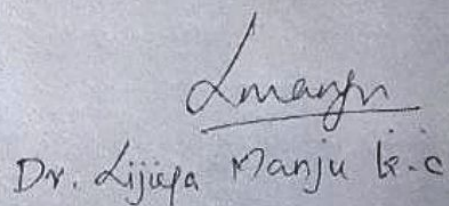 Lmanju
Dr. Lijiya Manju K.C